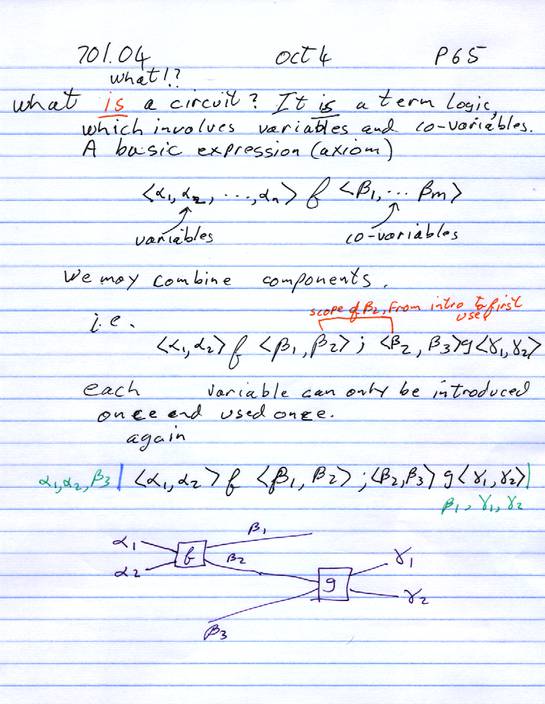 701.04 oct 4 P65
what!?
what is a circuit? It is a term logic,
which involves variables and co-variables.
A basic expression (axiom)
<α1, α2, ..., αn> f <β1, ... βm>
variables co-variables
We may combine components.
scope of β2, from intro to first
use
i.e.
<α1, α2> f <β1, β2> ; <β2, β3> g <γ1, γ2>
each variable can only be introduced
once and used once.
again
α1, α2, β3 | <α1, α2> f <β1, β2> ; <β2, β3> g <γ1, γ2> |
β1, γ1, γ2
α1 f β1
α2 β2 g γ1
γ2
β3